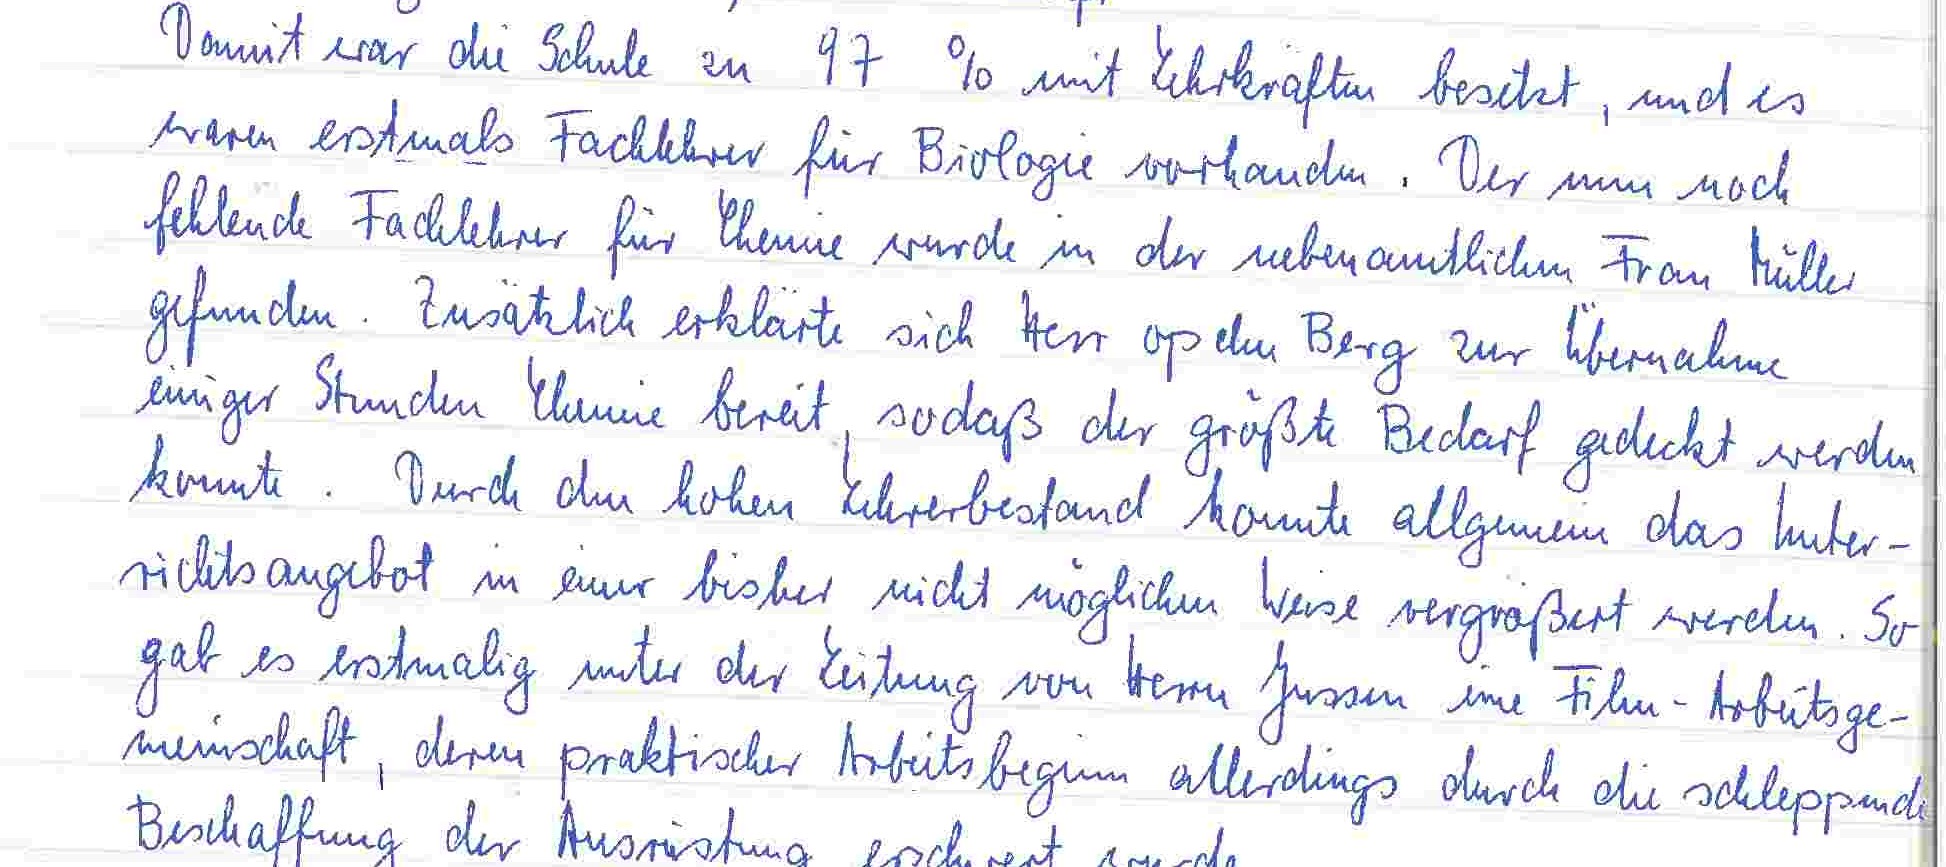 Damit war die Schule zu 97 % mit Lehrkräften besetzt, und es
waren erstmals Fachlehrer für Biologie vorhanden. Der nun noch
fehlende Fachlehrer für Chemie wurde in der nebenamtlichen Frau Müller
gefunden. Zusätzlich erklärte sich Herr op den Berg zur Übernahme
einiger Stunden Chemie bereit, sodaß der größte Bedarf gedeckt werden
konnte. Durch den hohen Lehrerbestand konnte allgemein das Unter-
richtsangebot in einer bisher nicht möglichen Weise vergrößert werden. So
gab es erstmalig unter der Leitung von Herrn Jussen eine Film-Arbeitsge-
meinschaft, deren praktischer Arbeitsbeginn allerdings durch die schleppende
Beschaffung der Ausrüstung erschwert wurde